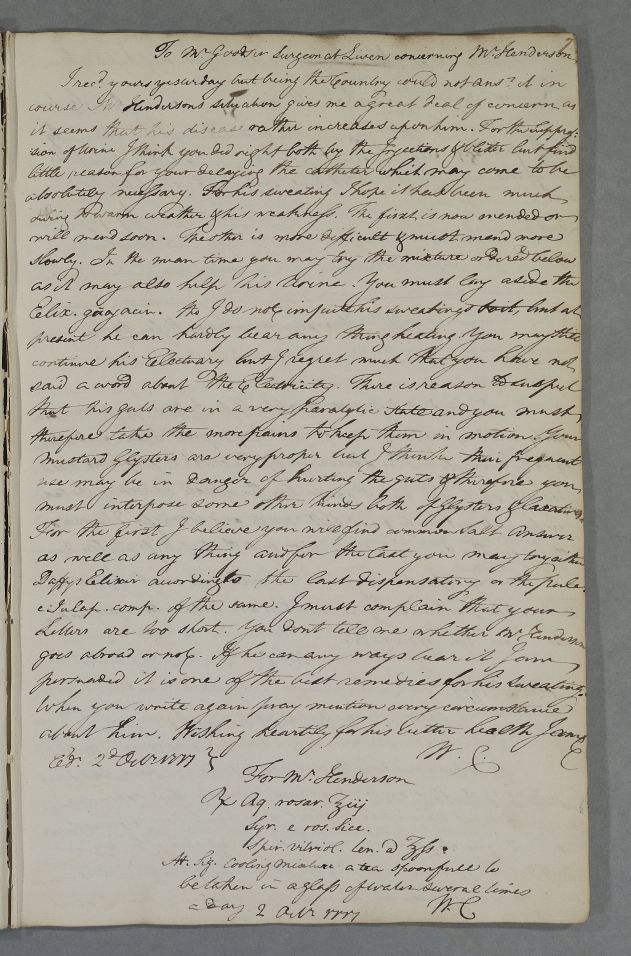 7
To Mr Goodsir Surgeon at Leven concerning Mr Henderson
I recd yours yesterday but being the Country could not ansr it in
course Mr Hendersons situation gives me a great deal of concern as
it seems that his disease rather increases upon him. For the Suppres:
sion of Urine I think you did right both by the Injections & blister but find
little reason for your delaying the catheter which may come to be
absolutely necessary. For his sweating I hope it has been much
owing to warm weather & his weakness. The first is now amended or
will mend soon. The other is more difficult & must mend more
slowly. In the mean time you may try the mixture ordered below
as it may also help his Urine. You must lay aside the
Elix. guajacin. tho I do not impute his sweatings to it, but at
present he can hardly bear any thing heating. You may still
continue his Electuary but I regret much that you have not
said a word about the Electricity. There is reason to suspect
that his guts are in a very paralytic state and you must
therefore take the more pains to keep them in motion. Your
mustard Glysters are very proper but I think their frequent
use may be in danger of hurting the guts & therefore you
must interpose some other kinds both of Glysters & Laxatives
For the first I believe you will find common salt answer
as well as any thing and for the last you may try either
Daffys Elixir according to the last dispensatory or the
e Julap. comp. of the same. I must complain that your
Letters are too short. You dont tell me whether Mr Henderson
goes abroad or not. If he can any ways bear it I am
perswaded it is one of the best remedies for his sweatings.
When you write again pray mention every circumstance
about him. Wishing heartily for his better health I am &c
Edr. 2d Octr 1777 } W. C.
For Mr Henderson
℞ Aq. rosar. ℥iij
Syr. e ros. sicc.
Spir. vitriol. ten. a ℥ss.
M. Sig. Cooling mixture a tea spoonfull to
be taken in a glass of water several times
a Day 2 Octr 1777 W. C